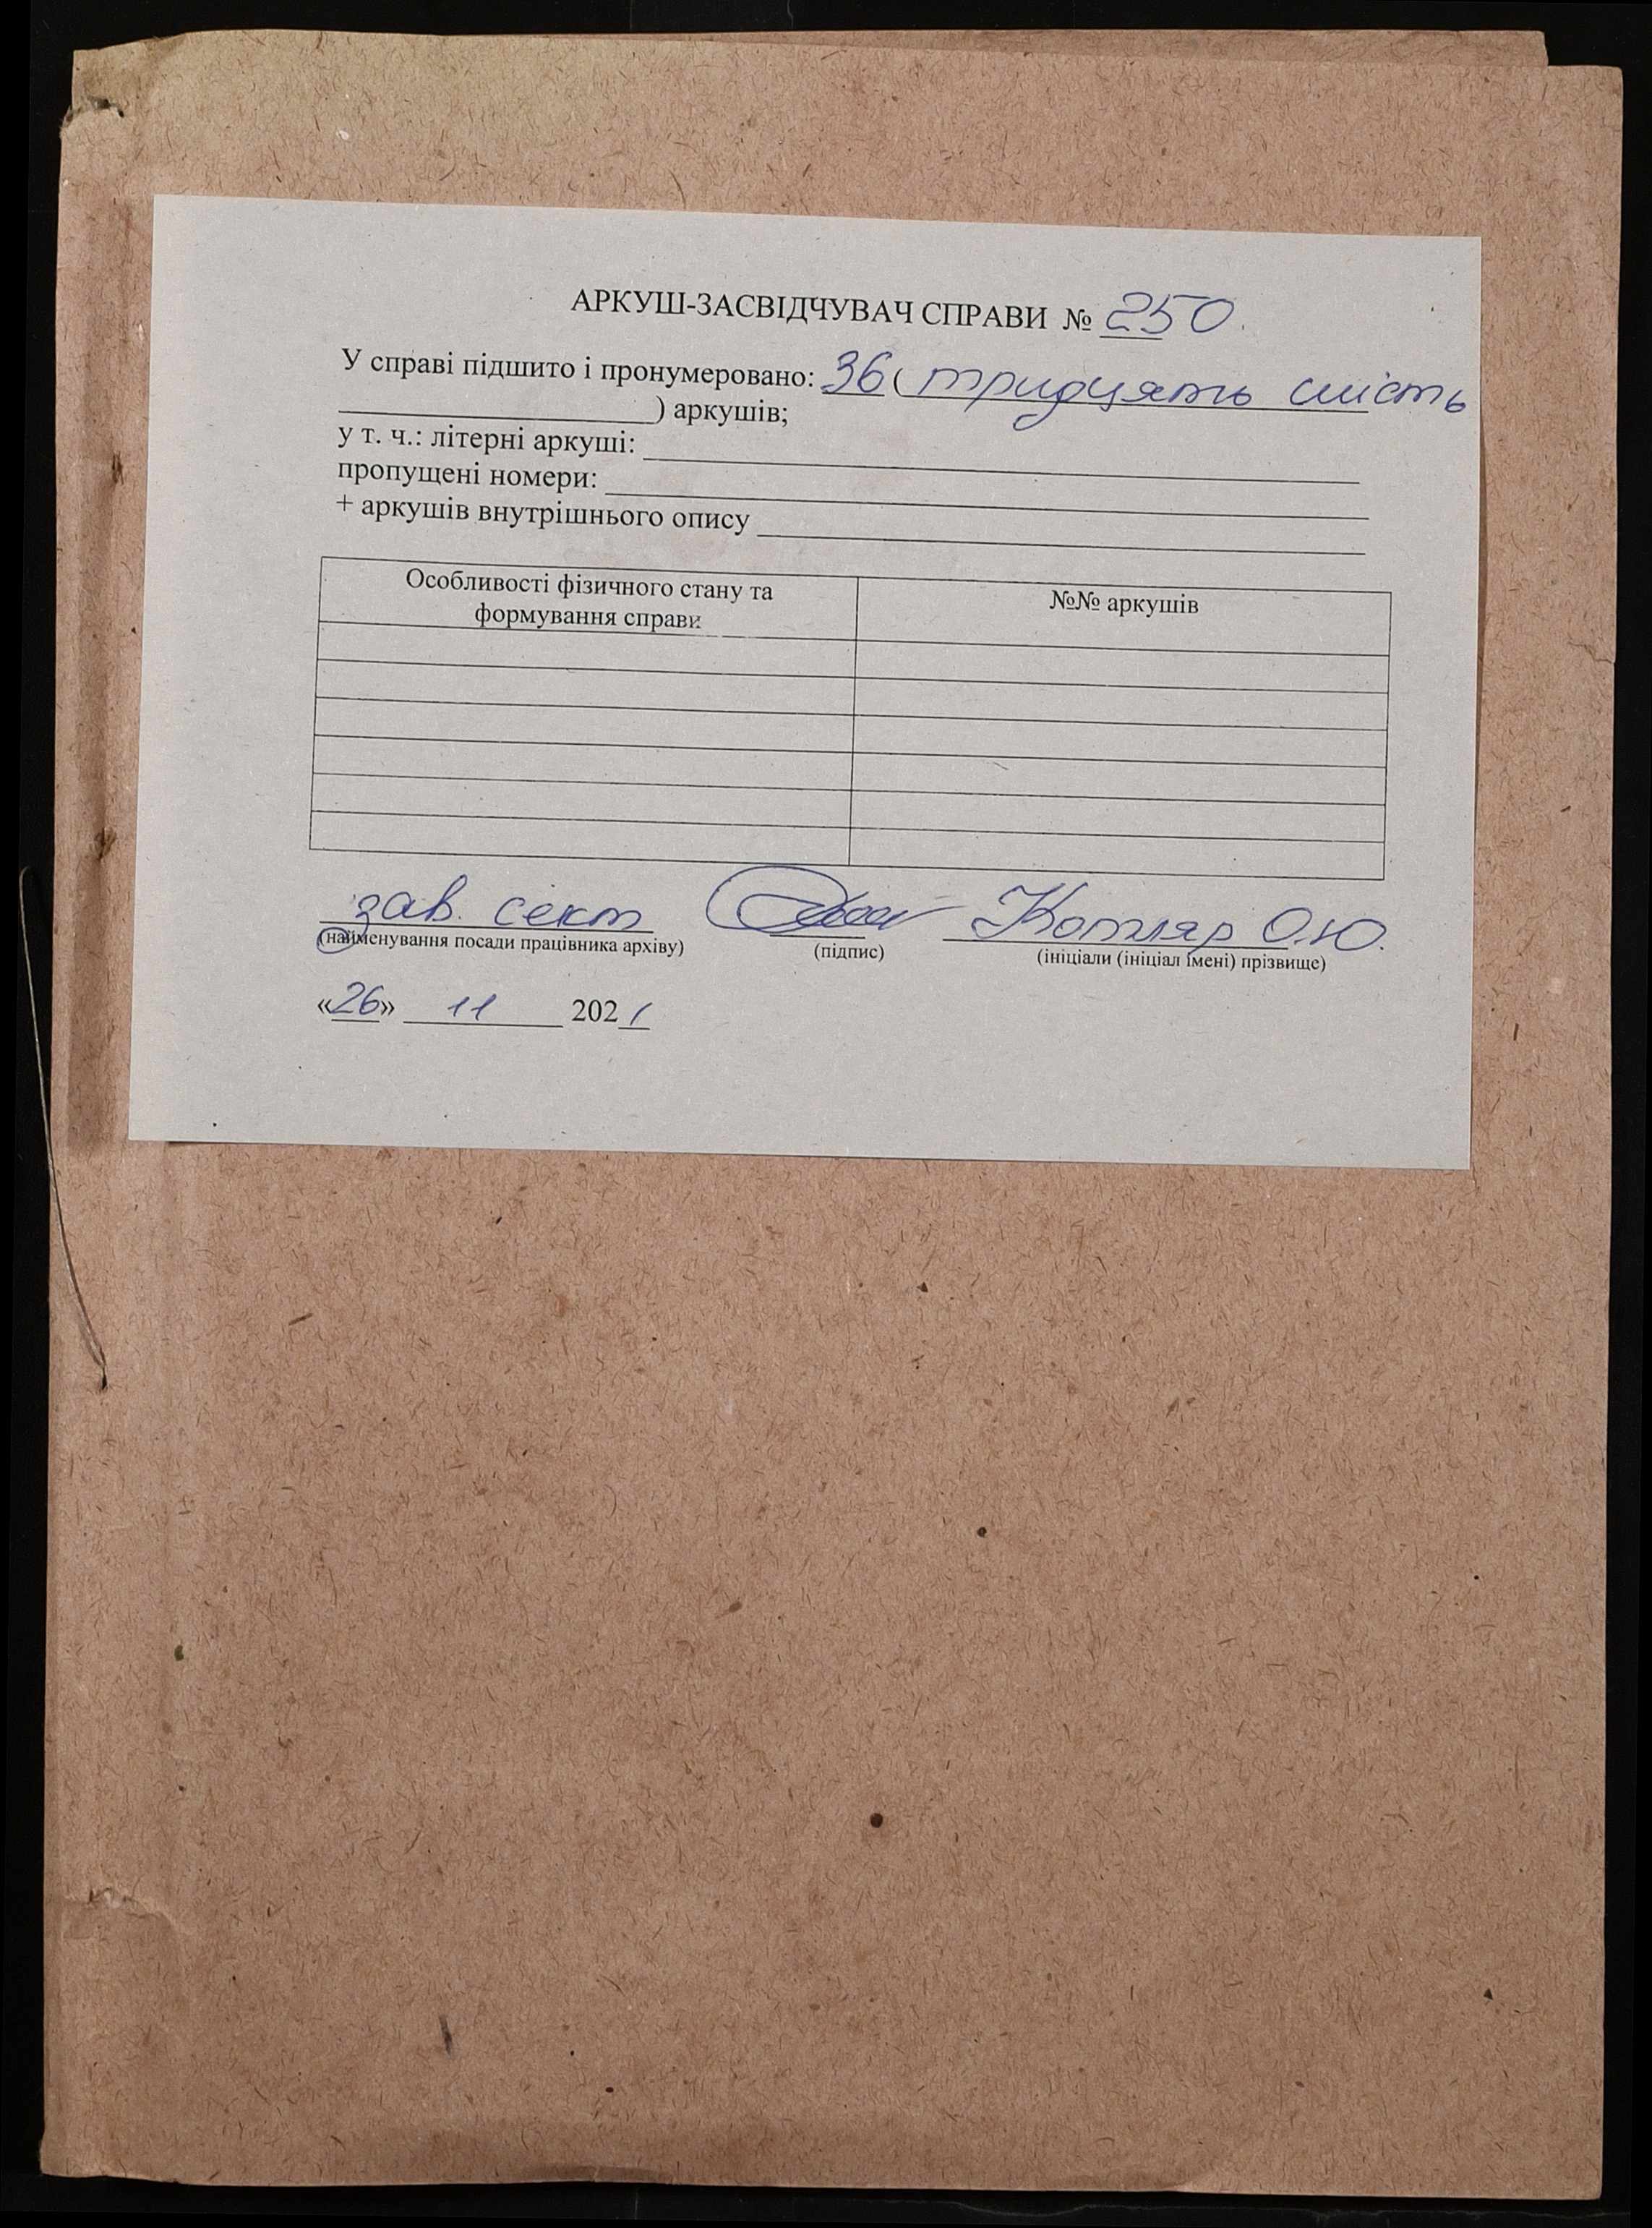 АРКУШ-ЗАСВІДЧУВАЧ СПРАВИ № 250.
У справі підшито і пронумеровано: 36 ( тридцять шість
) аркушів;
у т. ч.: літерні аркуші:
пропущені номери:
+ аркушів внутрішнього опису
Особливості фізичного стану та
формування справи
№№ аркушів
зав. сект Котляр О.Ю.
(найменування посади працівника архіву) (підпис) (ініціали (ініціал імені) прізвище)
«26» 11 2021